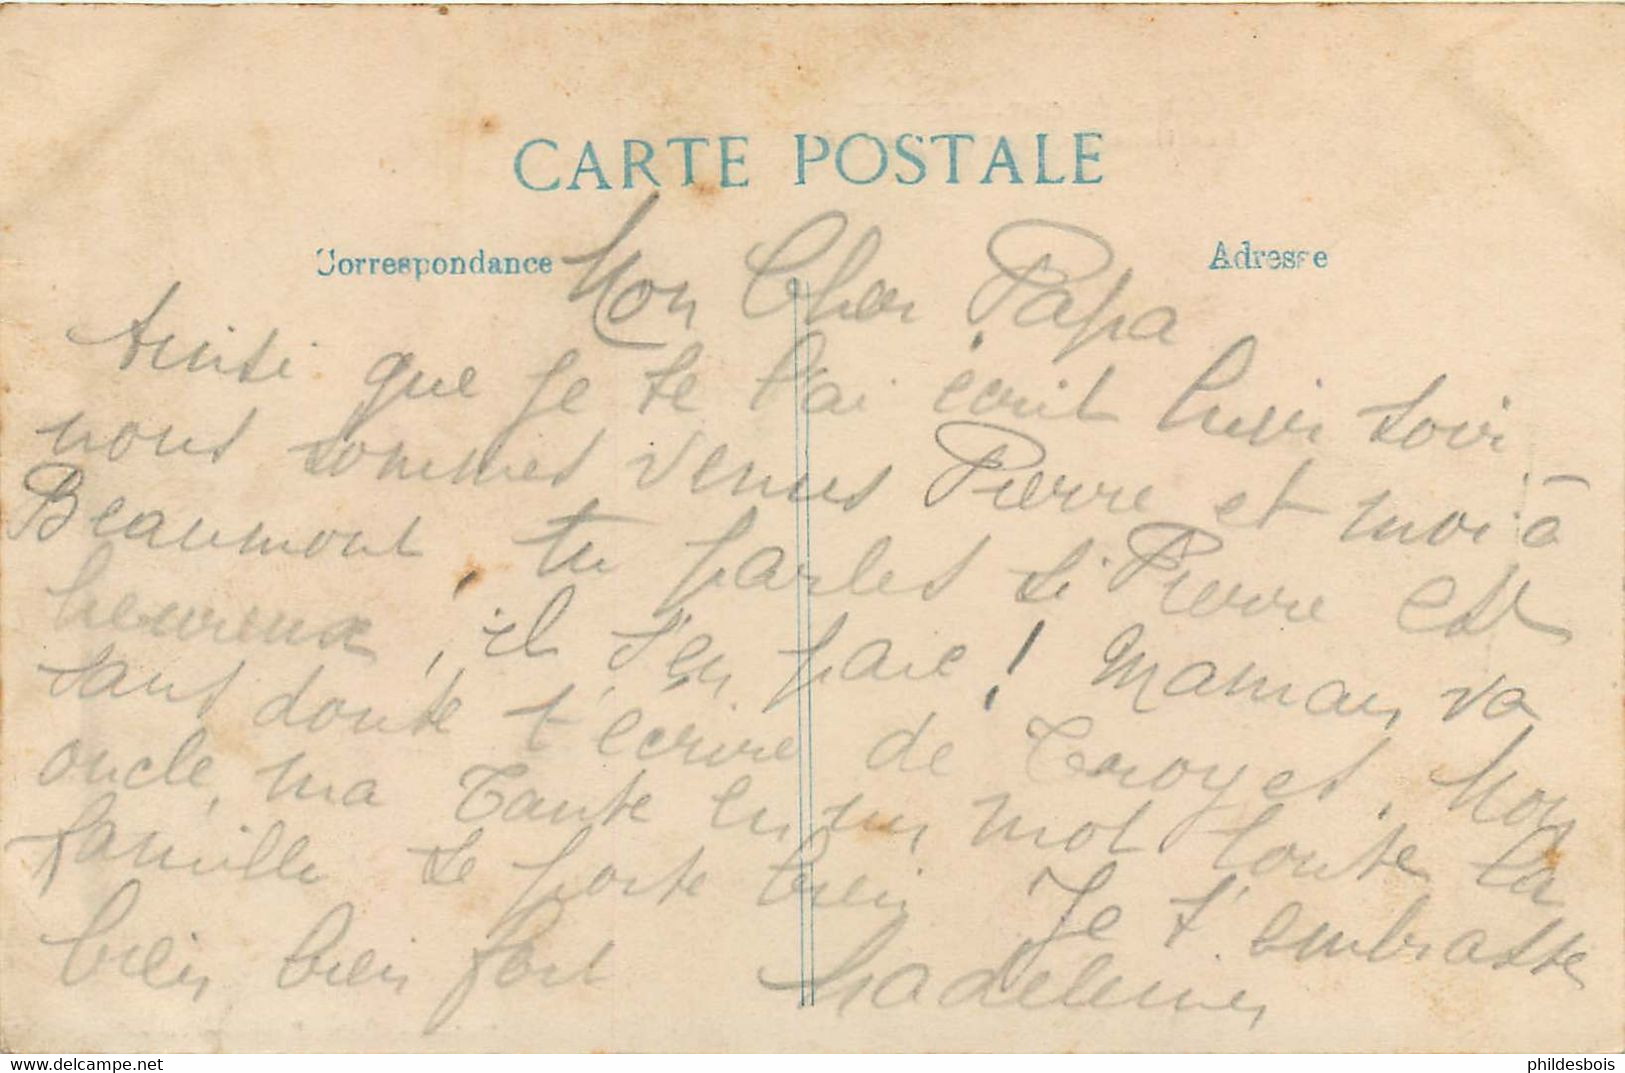 CARTE POSTALE
Correspondance
Adresse
Mon Cher Papa
Ainsi que je te l'ai écrit hier soir
nous sommes venus Pierre et moi à
Beaumont, tu parles si Pierre est
heureux, il s'en paie ! Maman va
sans doute t'écrire de Troyes. Mon
oncle, ma Tante en un mot toute la
famille se porte bien Je t'embrasse
bien bien fort Madeleine
delcampe.net
phildesbois